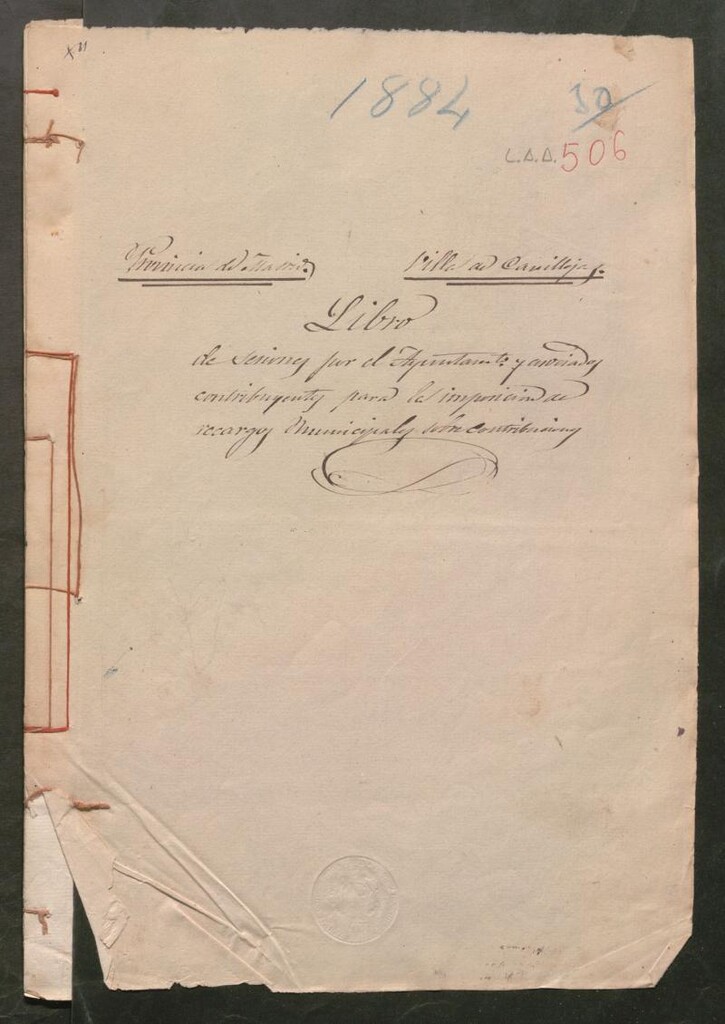 1884
50
L.A.A. 506
Provincia de Madrid
Villa de Canillejas.
Libro
de sesiones por el Ayuntamto. y asociados
contribuyentes para la imposicion de
recargos Municipales sobre contribuciones